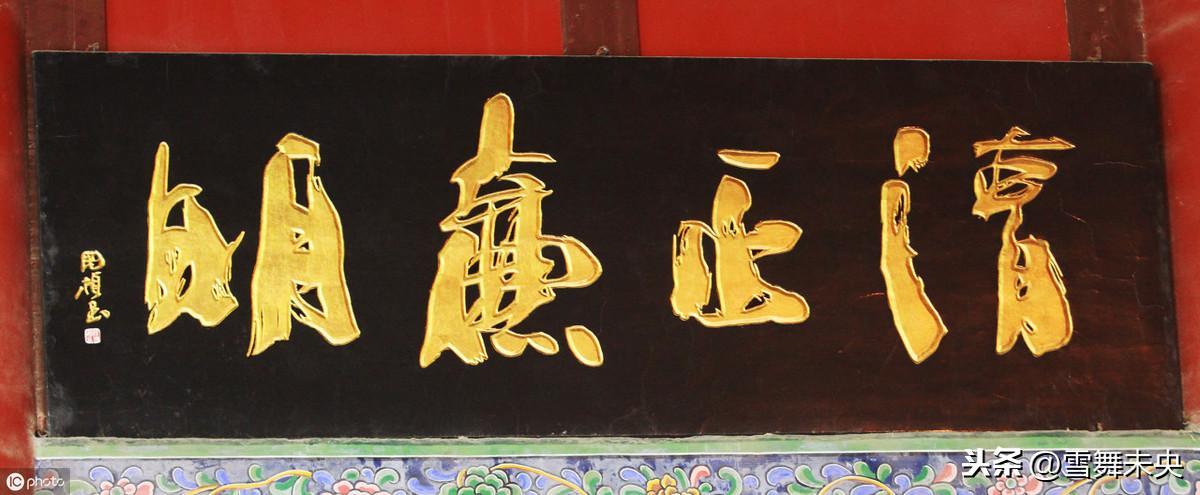 清正廉明
photo
头条 @雪舞未央